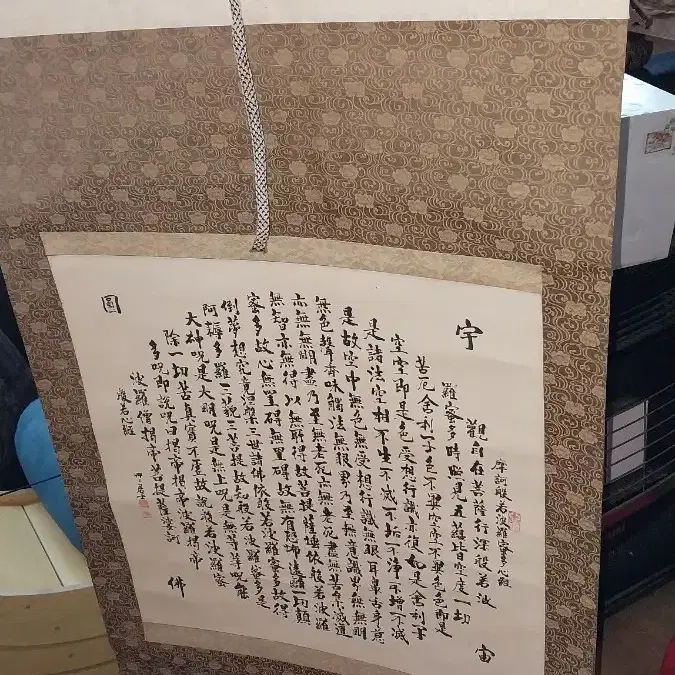 宇
宙
摩訶般若波羅蜜多心經
觀自在菩薩行深般若波
羅蜜多時照見五蘊皆空度一切
苦厄舍利子色不異空空不異色色即是
空空即是色受想行識亦復如是舍利子
是諸法空相不生不滅不垢不淨不增不減
是故空中無色無受想行識無眼耳鼻舌身意
無色聲香味觸法無眼界乃至無意識界無無明
亦無無明盡乃至無老死亦無老死盡無苦集滅道
無智亦無得以無所得故菩提薩埵依般若波羅
蜜多故心無罣碍無罣碍故無有恐怖遠離一切顛
倒夢想究竟涅槃三世諸佛依般若波羅蜜多故得
阿耨多羅三藐三菩提故知般若波羅蜜多是
大神呪是大明呪是無上呪是無等等呪能
除一切苦真實不虛故說般若波羅蜜
多呪即說呪曰揭帝揭帝波羅揭帝
波羅僧揭帝菩提薩婆訶
般若心經
圓
佛